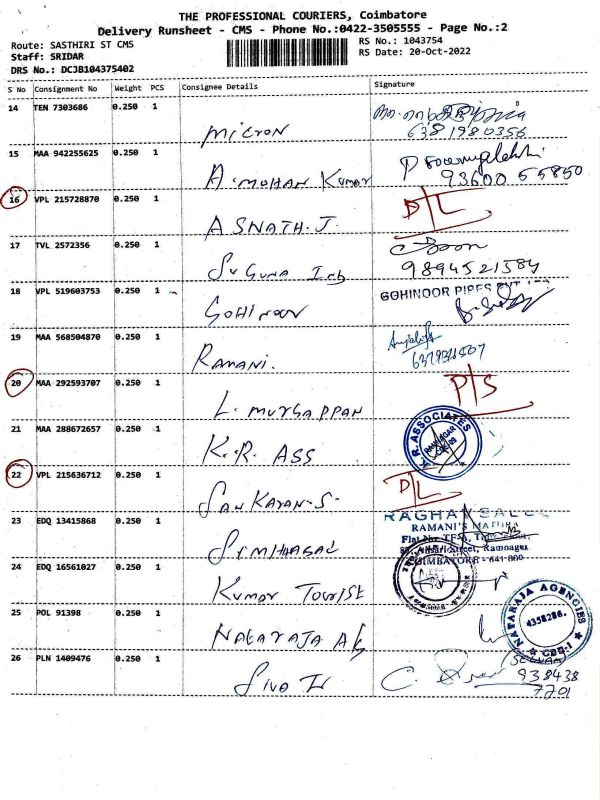 THE PROFESSIONAL COURIERS, Coimbatore
Delivery Runsheet - CMS - Phone No.:0422-3505555 - Page No.:2
Route: SASTHIRI ST CMS
RS No.: 1043754
Staff: SRIDAR
RS Date: 20-Oct-2022
DRS No.: DCJB104375402
S No Consignment No Weight PCS Consignee Details Signature
14 TEN 7303686 0.250 1
MICRON
6381980356
15 MAA 942255625 0.250 1
A. MOHAN KUMAR
93600 55850
16 VPL 215728870 0.250 1 D/L
ASNATH. J.
17 TVL 2572356 0.250 1
SUGUNA
9894521584
18 VPL 519603753 0.250 1 GOHINOOR PIPES PVT LTD
GOHINOOR
19 MAA 568504870 0.250 1
RAMANI.
20 MAA 292593707 0.250 1 P/S
L. MURGAPPAN
21 MAA 288672657 0.250 1 K.R. ASSOCIATES
K.R. ASS
22 VPL 215636712 0.250 1 D/L
SANKARAN-S.
23 EDQ 13415868 0.250 1
RAMANI'S
COIMBATORE - 641 009
24 EDQ 16561027 0.250 1
KUMAR TOURIST
25 POL 91398 0.250 1 NATARAJA AGENCIES
4358286.
CBE-1
NATARAJA AG
26 PLN 1409476 0.250 1 (SELVAM)
SIVA
938438
7701